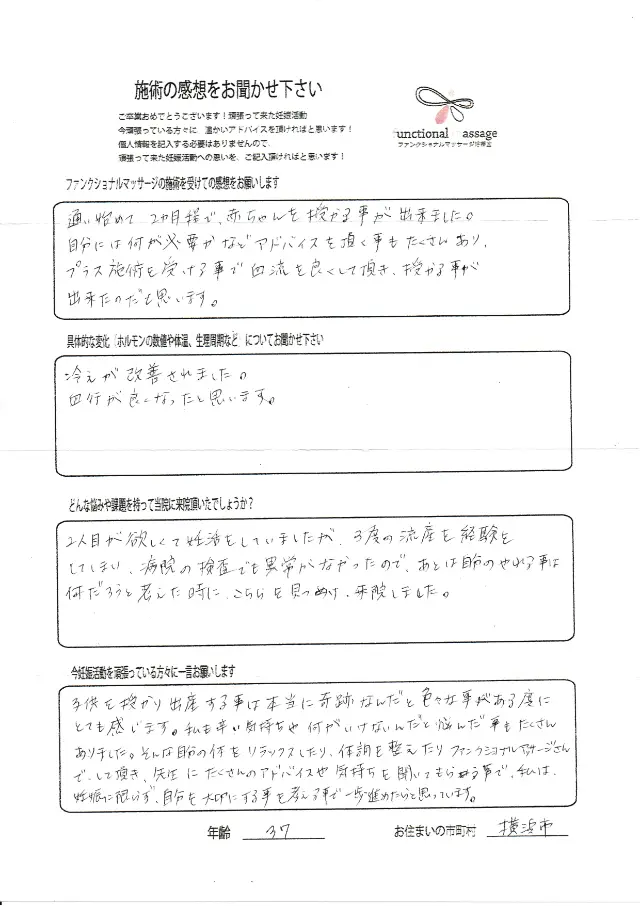 施術の感想をお聞かせ下さい
ご卒業おめでとうございます！頑張って来た妊娠活動
今頑張っている方々に 温かいアドバイスを頂ければと思います！
個人情報を記入する必要はありませんので、
頑張って来た妊娠活動への思いを、ご記入頂ければと思います！
unctional assage
ファンクショナルマッサージ治療室
ファンクショナルマッサージの施術を受けての感想をお願いします
通い始めて 2ヵ月程で、赤ちゃんを授かる事が出来ました。
自分には何が必要かなどアドバイスを頂く事もたくさんあり、
プラス施術を受ける事で血流を良くして頂き、授かる事が
出来たのだと思います。
具体的な変化（ホルモンの数値や体温、生理周期など）についてお聞かせ下さい
冷えが改善されました。
血行が良くなったと思います。
どんな悩みや課題を持って当院に来院頂いたでしょうか？
2人目が欲しくて妊活をしていましたが、3度の流産を経験を
してしまい、病院の検査でも異常がなかったので、あとは自分のやれる事は
何だろうと考えた時に、こちらを見つけ、来院しました。
今妊娠活動を頑張っている方々に一言お願いします
子供を授かり出産する事は本当に奇跡なんだと色々な事がある度に
とても感じます。私も辛い気持ちや何がいけないんだと悩んだ事もたくさん
ありました。そんな自分の体をリラックスしたり、体調を整えたりファンクショナルマッサージさん
で、して頂き、先生にたくさんのアドバイスや気持ちを聞いてもらう事で、私は、
妊娠に限らず、自分を大切にする事を考える事で一歩進めたらと思っています。
年齢 37 お住まいの市町村 横浜市